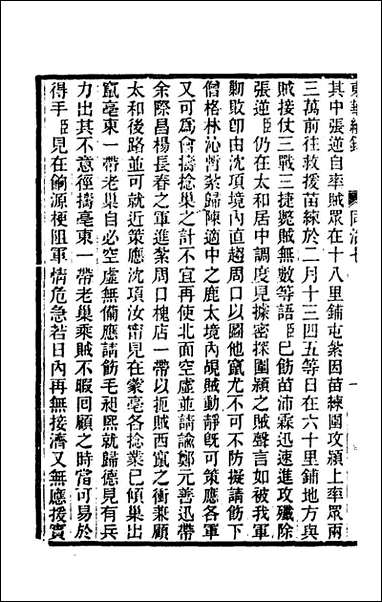 東華續錄 同治七 一
其中張逆自率賊眾在十八里鋪屯紮因苗練圍攻潁上率眾兩
三萬前往救援苗練於二月十三四五等日在六十里鋪地方與
賊接仗三戰三捷斃賊無數等語臣已飭苗沛霖迅速進攻殲除
張逆臣仍在太和居中調度見據密探圍潁之賊聲言如被我軍
勦敗卽由沈項境內直趨周口以圖他竄尤不可不防擬請飭下
僧格林沁暫紮歸陳適中之鹿太境內覘賊動靜旣可策應各軍
又可爲會擣捻巢之計不宜再使北面空虛並請諭鄭元善迅帶
余際昌楊長春之軍進紮周口槐店一帶以扼賊西竄之衝兼顧
太和後路並可就近策應沈項汝甯見在蒙亳各捻業已傾巢出
竄亳東一帶老巢自必空虛無備應請飭毛昶熙就歸德見有兵
力出其不意徑擣亳東一帶老巢乘賊不暇回顧之時當可易於
得手臣見在餉源梗阻軍情危急若日內再無接濟又無應援實